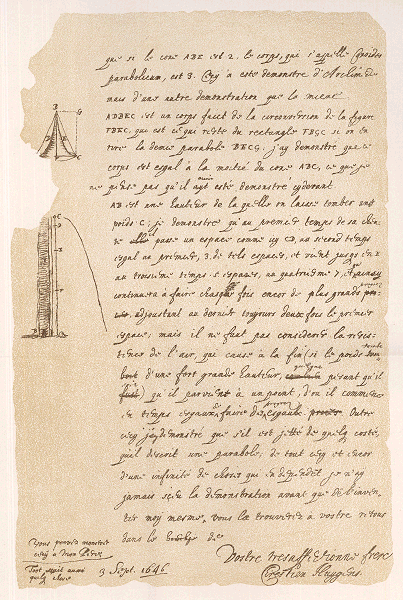 que si le cone ABE est 2. le corps, qui s'appelle Conoides
parabolicum, est 3. Cecy a esté demonstré d'Archimede
mais d'une autre demonstration que la miene
ADBEC est un corps faict de la circonversion de la figure
FBEC, qui est ce qui reste du rectangle FBGC si on en
tire la demie parabole BECG. j'ay demonstré que ce
corps est esgal à la moitié du cone ABC, ce que je
ne pense pas qu'il ayt esté demonstré cydevant
AB est une hauteur de la quelle on laisse tomber un
poids C; je demonstre qu'au premier temps de sa cheu-
te passe un espace comme icy CD, au second temps
esgal au premier, 3 de tels espaces, et vient jusqu'en
au troisieme temps 5 espaces, au quatriesme 7, et
continuera à faire chasque fois encor de plus grands
adjoustant au dernier toujours deux fois le premier
espace; mais il ne faut pas considerer la resis-
tence de l'air, qui cause à la fin (si le poids
d'une fort grande hauteur, pesant qu'il
qu'il parvient à un point, d'ou il commence
en temps esgaux à faire des espaces Outre
cecy j'ay demonstré que s'il est jetté de quelq costé,
qu'il descrit une parabole, de tout cecy et encor
d'une infinité de choses qui en dependet je n'ay
jamais sceu la demonstration avant que de l'inven-
ter moy mesme. vous la trouverez à vostre retour
dans le de
Vostre tresaffectionné frere
Crestien Huygens.
Vous pouvez monstrer
cecy à mon Pere
3 Sept. 1646
A
B
C
D
E
F
G